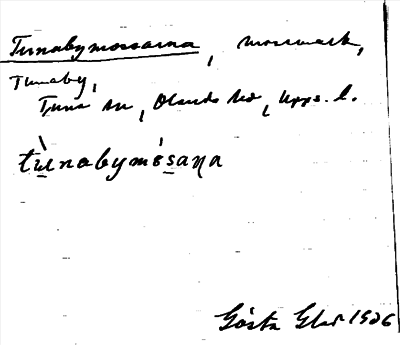 Tunabymossarna, mossmark,
Tunaby,
Tuna sn, Olands hd, Upps. l.
tùnabymósaṇa
Gösta Glad 1926